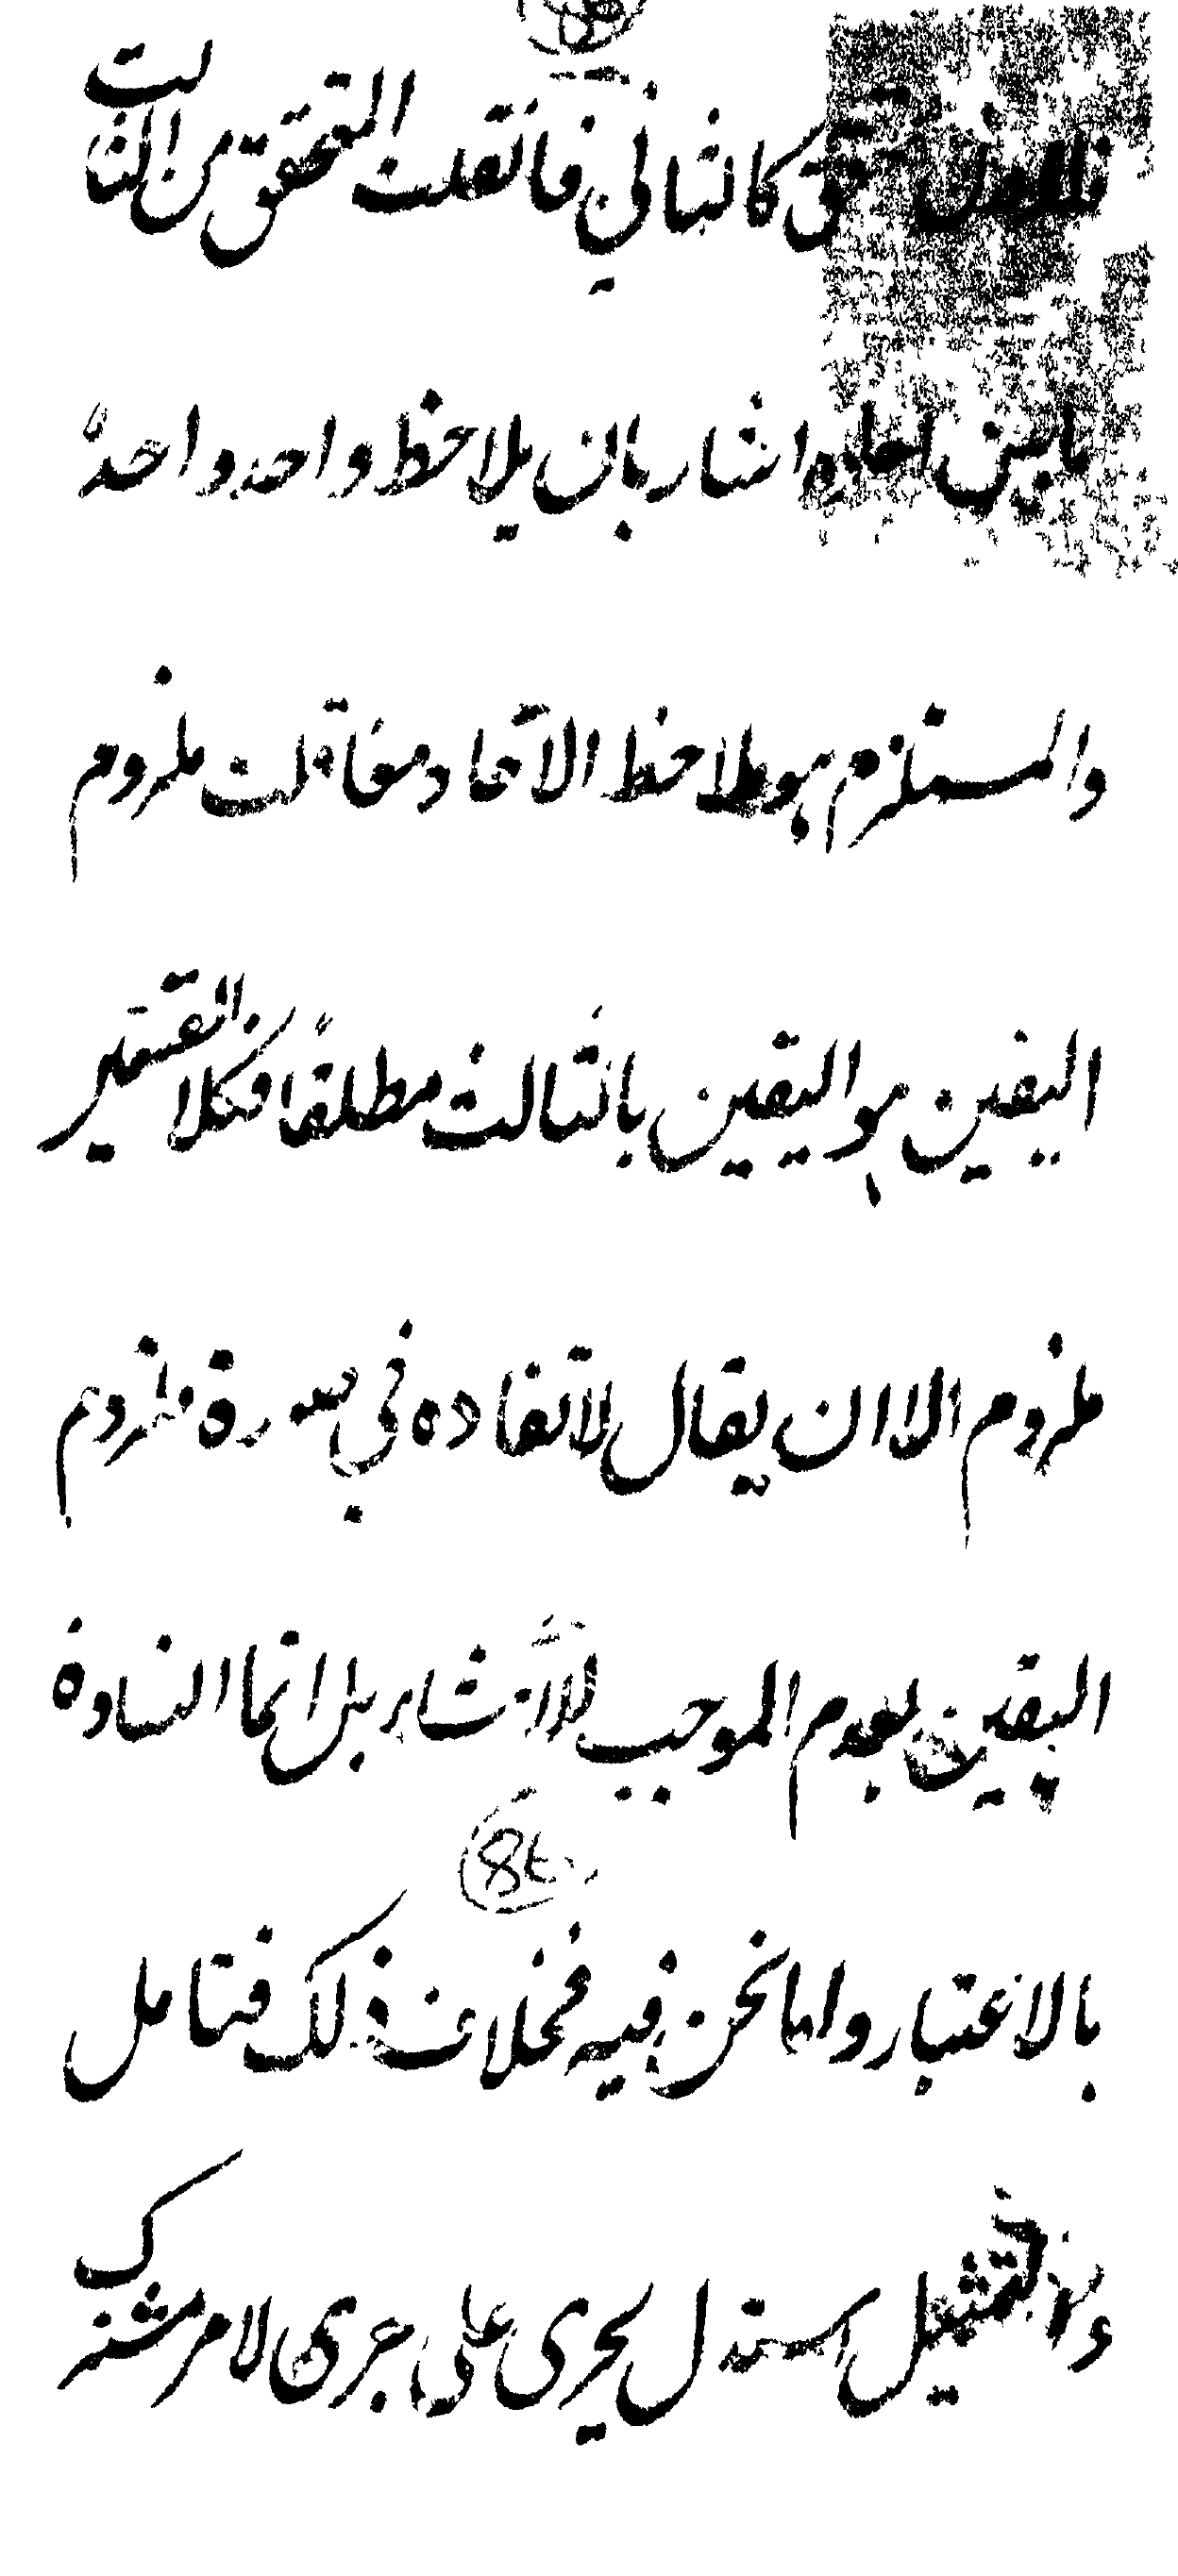 فالاول كالثاني فان قلت التحقق من الثالث
ما بين احاده اشار بان يلاحظ واحد واحد
والمستلزم هو ملاحظ الآحاد معا قلت ملزوم
اليقين هو اليقين بالثالث مطلقا فكلا القسمين
ملزوم الا ان يقال لاتفاده في صورة ملزوم
اليقين لعدم الموجب للانتشار بل انما النادوة
بالاعتبار واما نحن فيه فبخلاف ذلك فتامل
والتمثيل استدل لجزئ على جزئ لامر مشترك